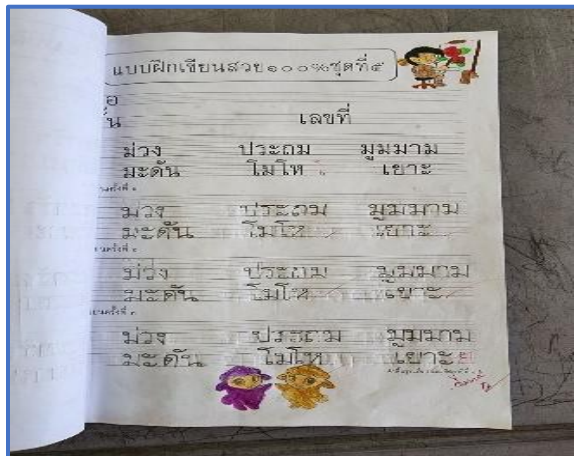 แบบฝึกเขียนสวย๑๐๐%ชุดที่๕
เลขที่
ม่วง ประถม มูมมาม
มะดัน โมโห เยาะ
ม่วง ประถม มูมมาม
มะดัน โมโห เยาะ
ม่วง ประถม มูมมาม
มะดัน โมโห เยาะ
ม่วง ประถม มูมมาม
มะดัน โมโห เยาะ